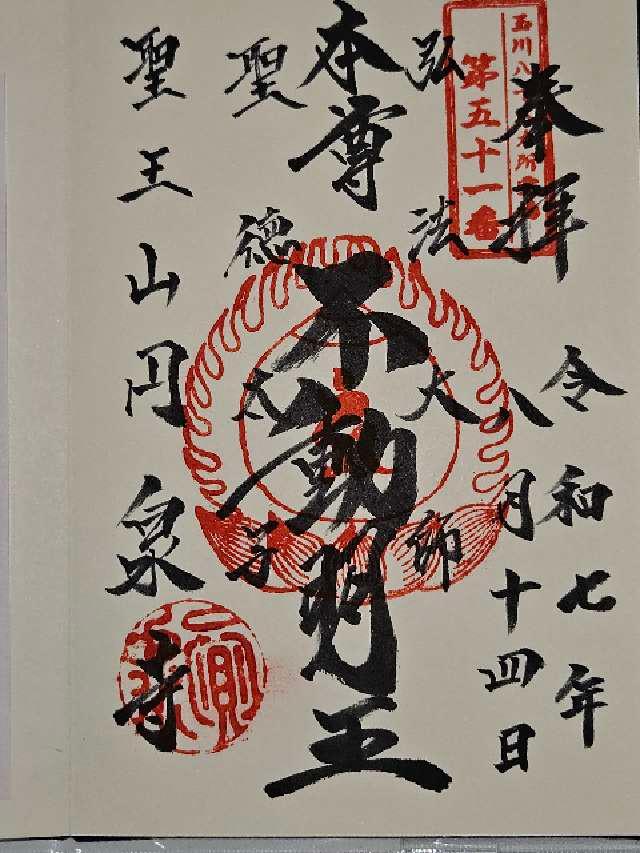 奉拝
令和七年
八月十四日
玉川八十八ヶ所霊場
第五十一番
弘法大師
本尊
不動明王
聖徳太子
聖王山円泉寺